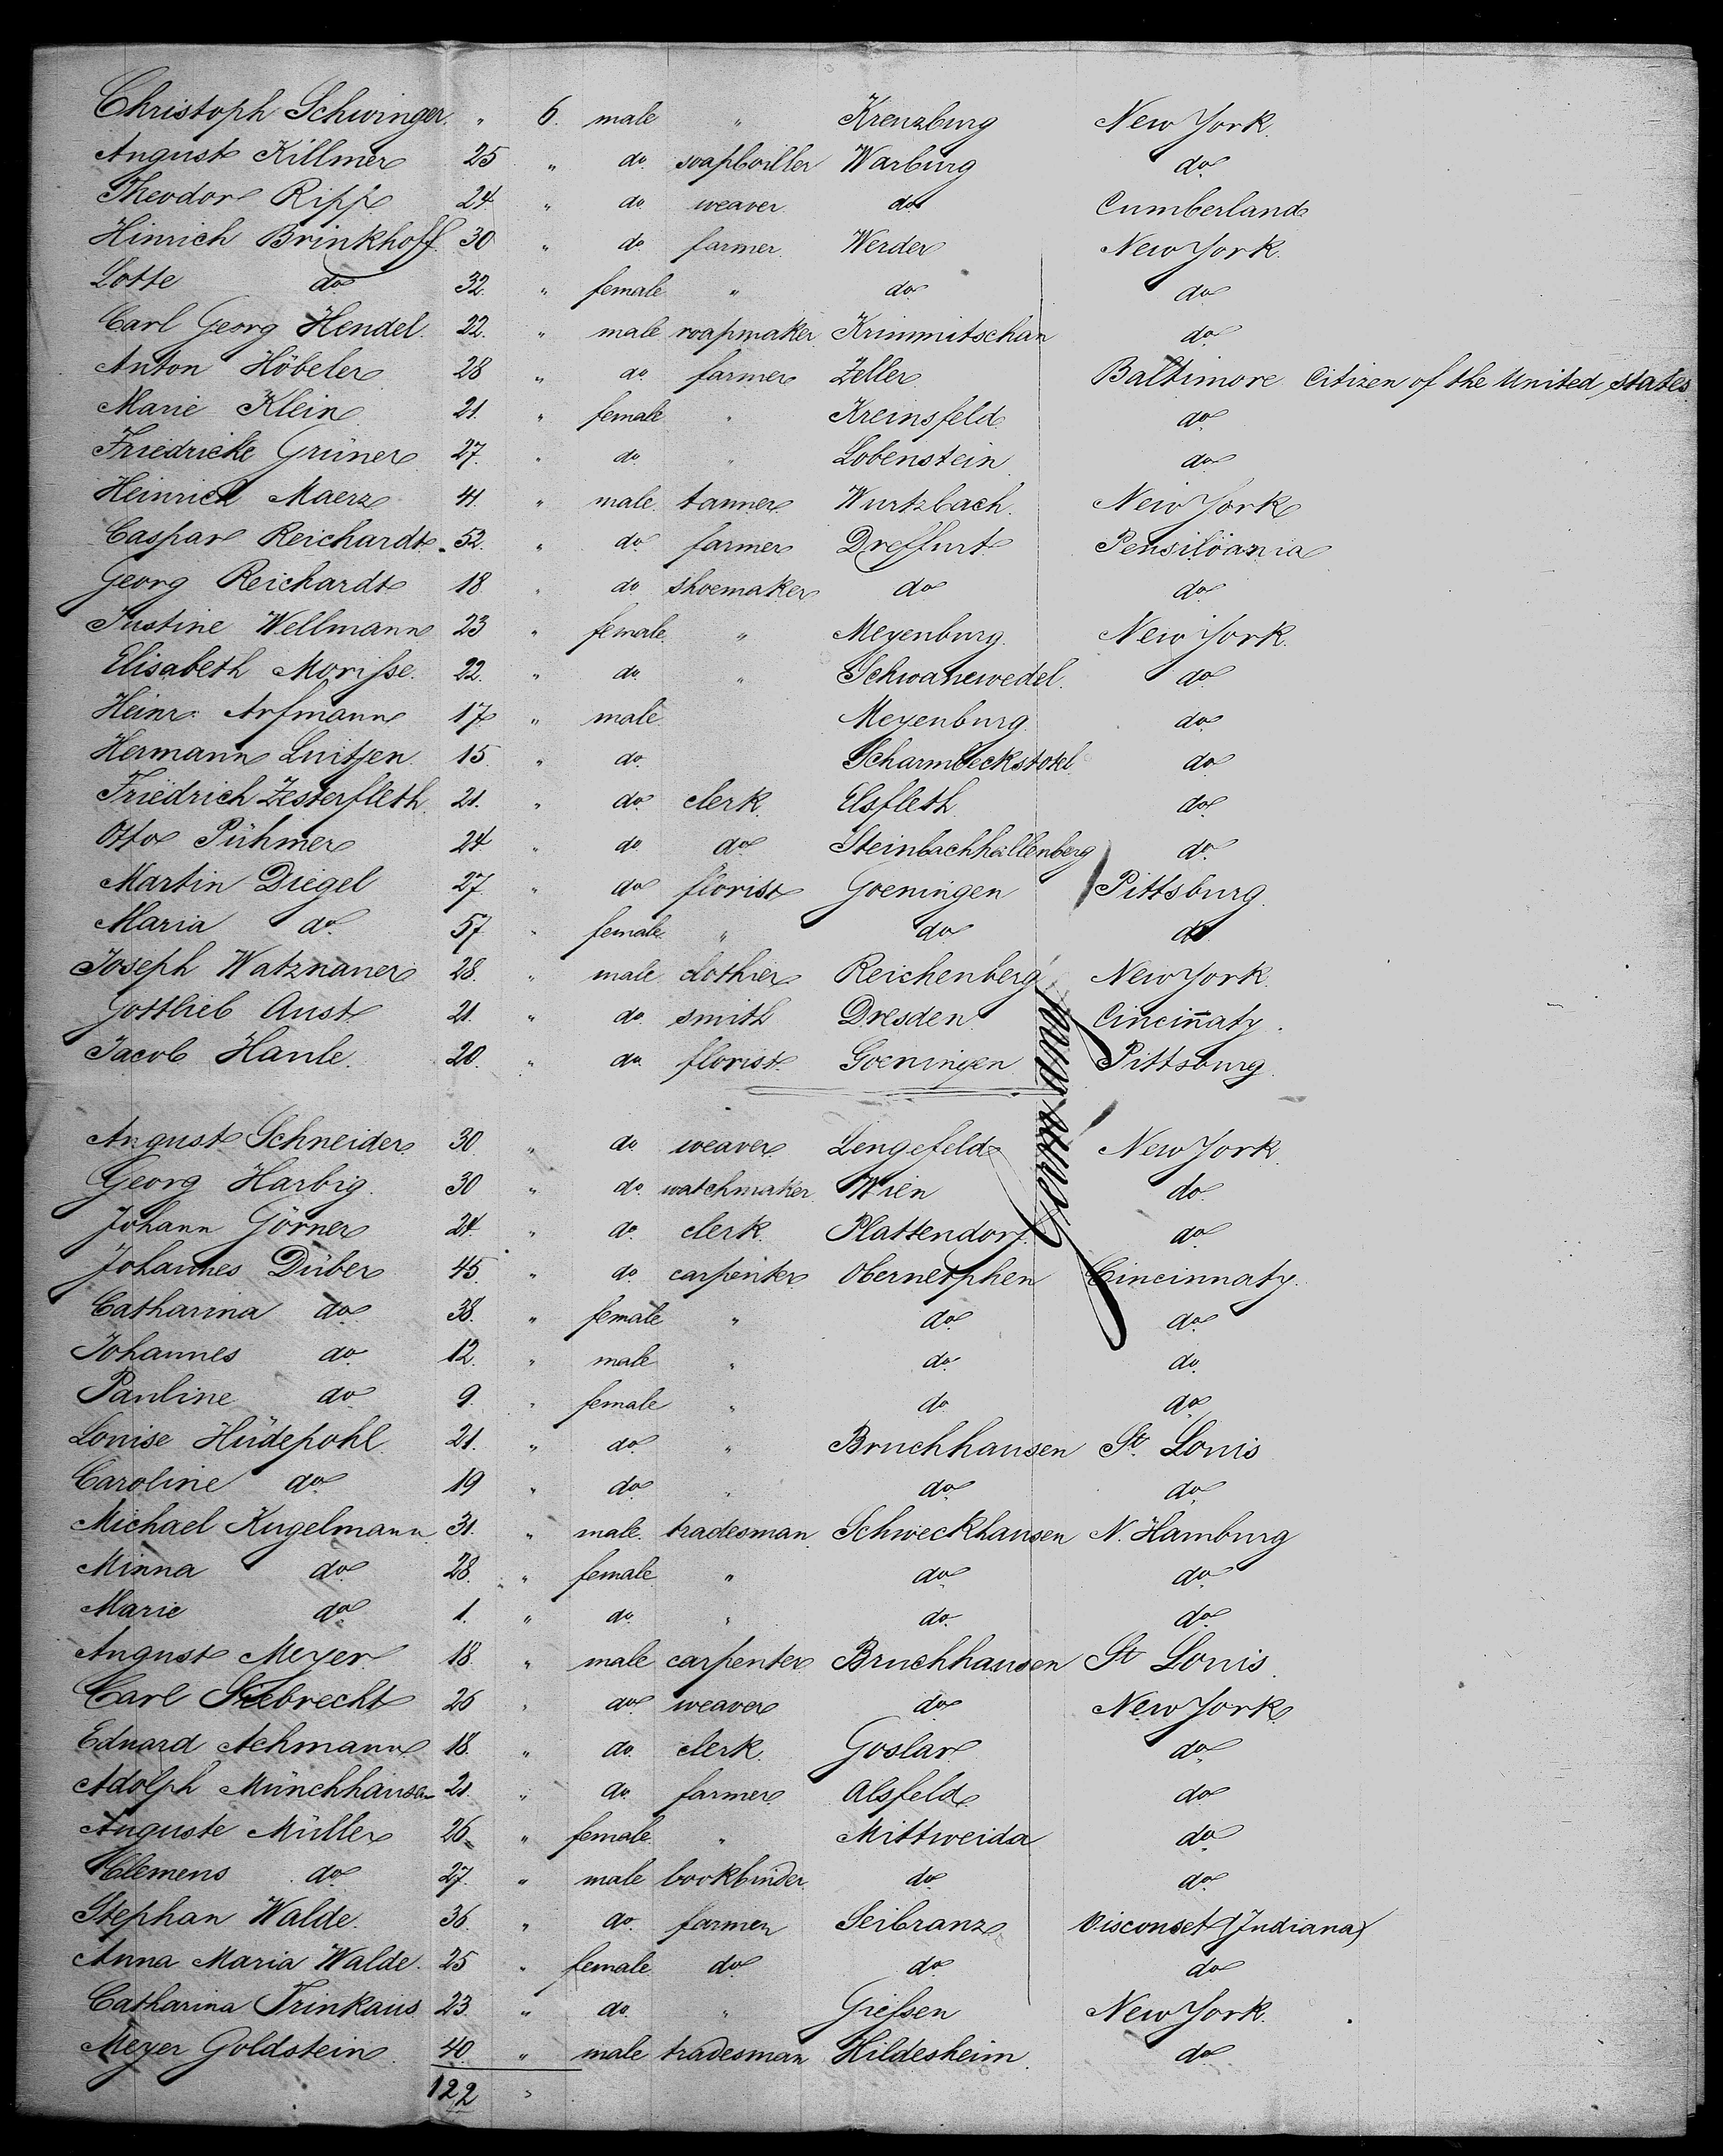 Christoph Schwinger. " 6. male " Kreuzburg New York.
August Killmer 25 " do. soapboiller Warburg do.
Theodor Ripp 24. " do. weaver do. Cumberland
Hinrich Brinkhoff. 30 " do farmer. Werder New York.
Lotte do 32. " female " do. do.
Carl Georg Hendel. 22. " male soapmaker Krimmitschau do.
Anton Höbeler 28 " do. farmer Zeller Baltimore Citizen of the United states
Marie Klein 21. " female " Kreinsfeld do.
Friedricke Grüner 27. " do. " Lobenstein do.
Heinrich Maerz 41. " male. tanner Wurtzbach. New York
Caspar Reichardt. 52. " do. farmer Dreffurt Pensilvania
Georg Reichardt 18 " do shoemaker do do.
Justine Wellmann 23 " female " Meyenburg. New York.
Elisabeth Morisse. 22. " do. " Schwanewedel. do.
Heinr. Arfmann 17 " male. Meyenburg. do.
Hermann Luitjen. 15. " do. Scharmbeckstotel do
Friedrich Zesterfleth. 21. " do. clerk. Elsfleth. do.
Otto Pühmer 24 " do. do. Steinbachhallenberg do.
Martin Diegel 27. " do florist Goeningen Pittsburg.
Maria do. 57 " female " do do
Joseph Watznauer 28. " male clothier Reichenberg New York.
Gottlieb Aust 21. " do. smith Dresden Cincinnaty.
Jacob Hanle. 20. " do. florist. Goeningen Pittsburg.
Germany
August Schneider 30. " do. weaver Lengefeld New York.
Georg Harbig. 30 " do. watchmaker Wien do.
Johann Görner 24. " do. clerk. Plattendorf. do.
Johannes Düber 45. " do. carpenter Obernetphen Cincinnaty.
Catharina do. 38. " female " do. do.
Johannes do. 12. " male " do. do.
Pauline do 9. " female " do do.
Louise Hüdepohl 21. " do. " Bruchhausen St. Louis
Caroline do 19 " do. " do. do.
Michael Kugelmann 31. " male. tradesman Schweckhausen N. Hamburg
Minna do. 28. " female " do. do.
Marie do. 1. " do. " do. do.
August Meyer 18. " male carpenter Bruchhausen St Louis.
Carl Siebrecht 26 " do. weaver do. New York.
Eduard Achmann 18. " do. clerk. Goslar do.
Adolph Münchhausen 21. " do. farmer Alsfeld do.
Auguste Müller 26. " female. " Mittweida do.
Clemens do. 27. " male bookbinder. do. do.
Stephan Walde. 36. " do. farmer Seibranz Visconset (Indiana)
Anna Maria Walde. 25 " female do. do. do
Catharina Trinkaus 23. " do. " Giefsen New York.
Meyer Goldstein 40. " male tradesman Hildesheim. do.
122 "